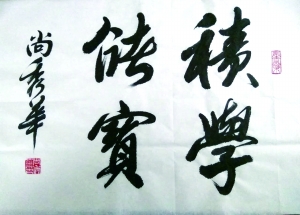 積學
儲寶
尚秀華